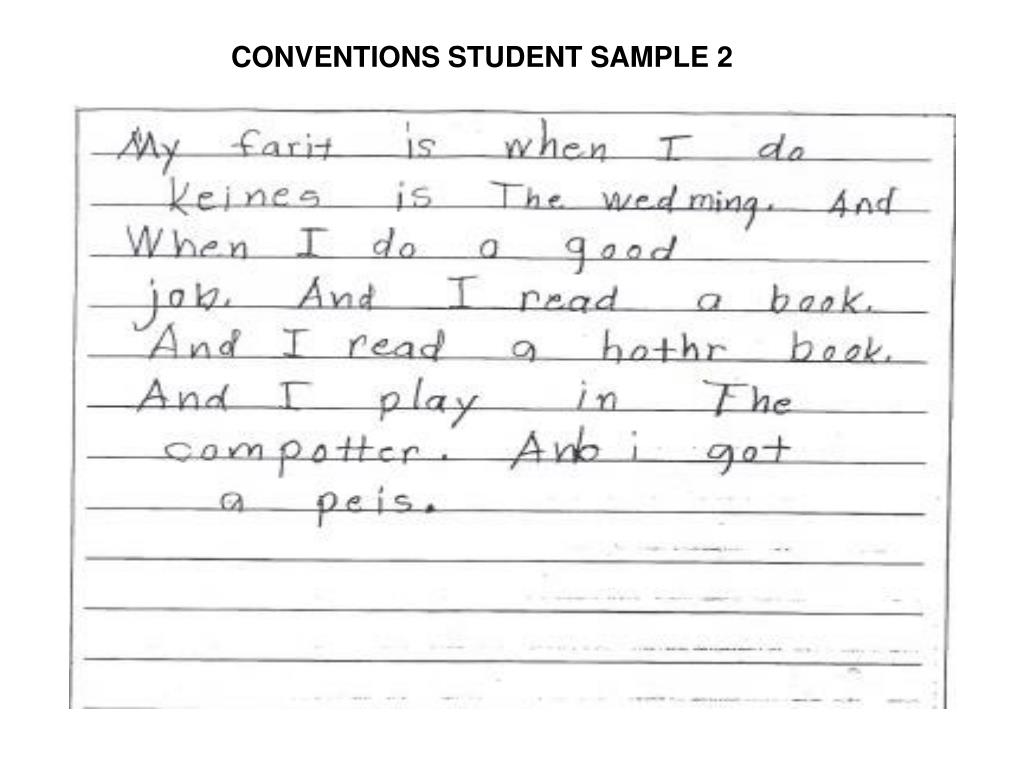 CONVENTIONS STUDENT SAMPLE 2
My farit is when I do
keines is The wedming. And
When I do a good
job. And I read a book.
And I read a hothr book.
And I play in The
compotter. Anb i got
a peis.